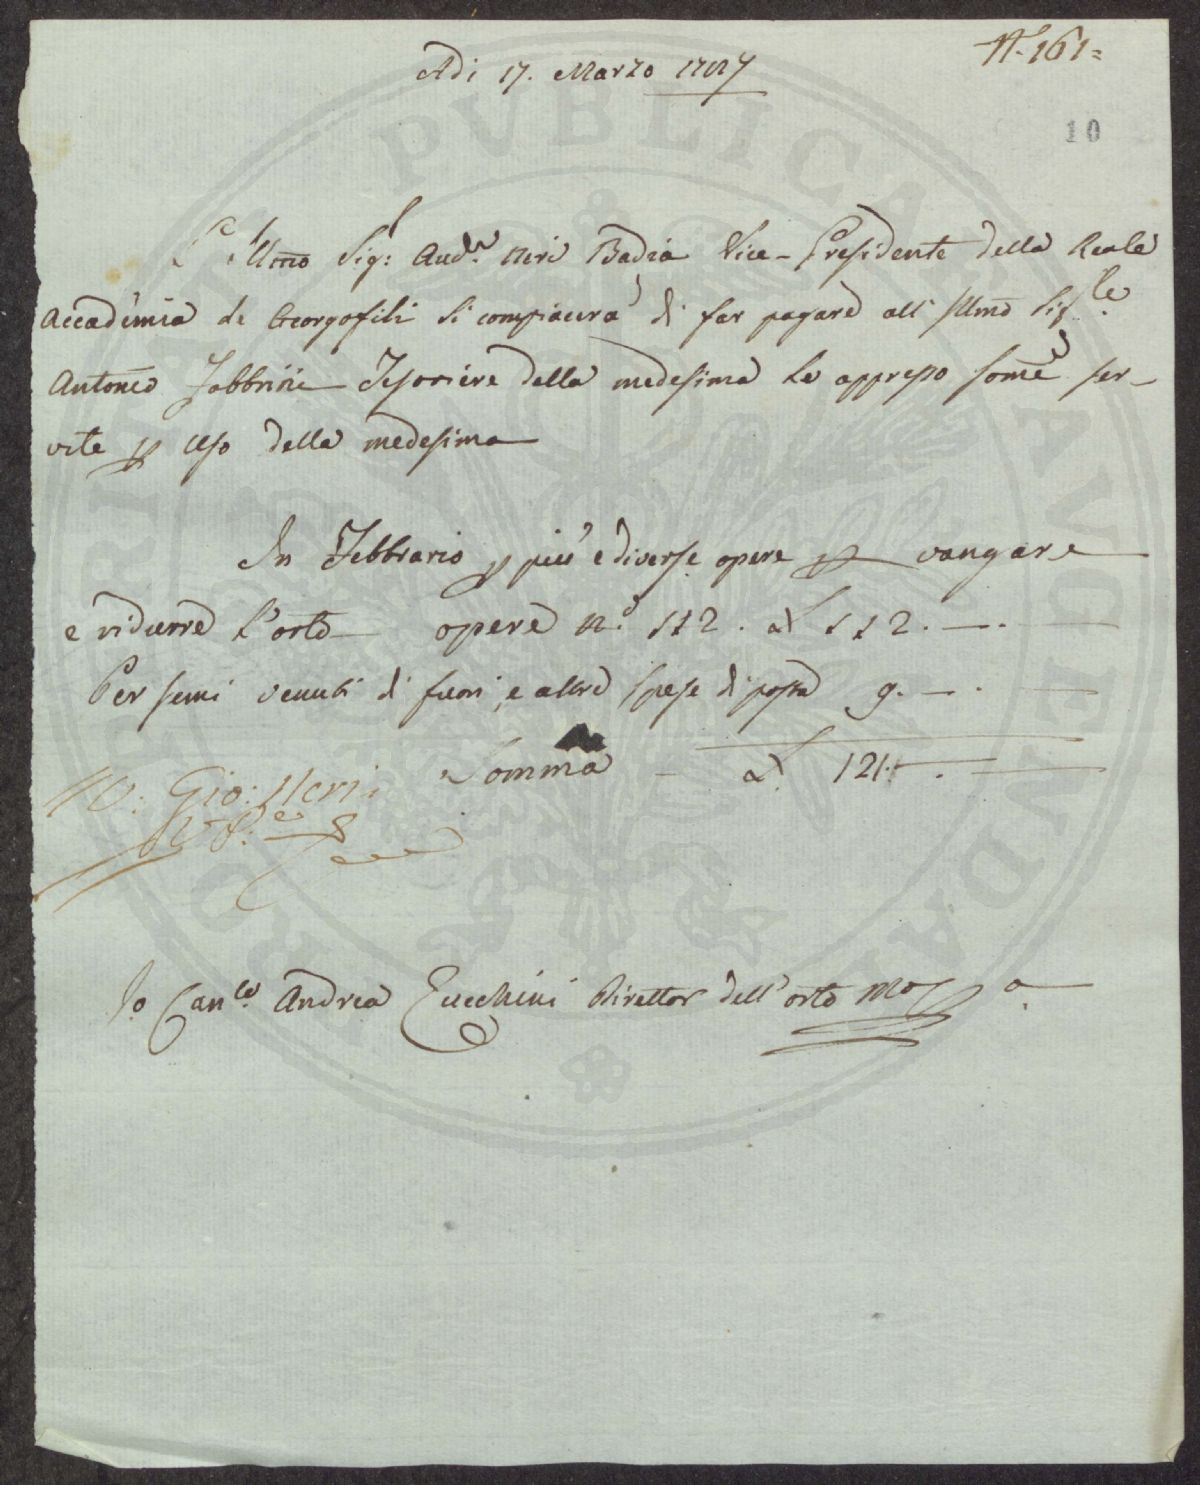 N.° 161=
Adi 17. Marzo
10
L' Illmo Sig: Aud.re Neri Badia Vice-Presidente della Reale
Accademia de Georgofili si compiacerà di far pagare all' Illmo Sig.le
Antonio Fabbrini Tesoriere della medesima le appresso some ser-
vite p uso della medesima
In Febbrario p più e diverse opere p vangare
e ridurre l'orto opere n.° 112. £ 112. —. —
Per semi venuti di fuori, e altre spese di posta 9. —. —
Somma - £. 121. —
V: Gio: Neri
V P.e
Io Can.co Andrea Zucchini Direttor dell'orto